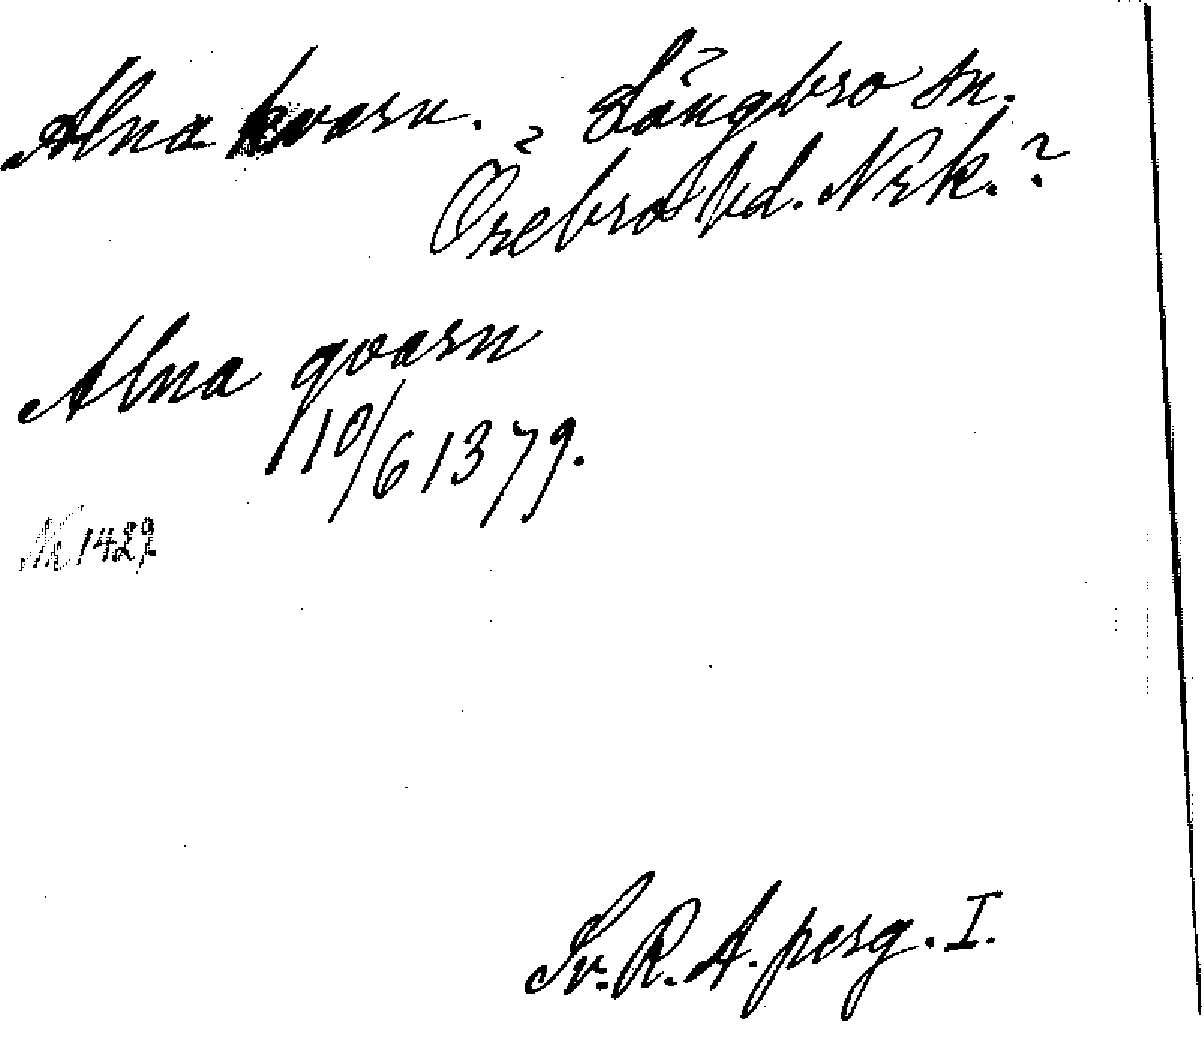 Alna kvarn. ? Långbro sn.
Örebro hd. Nrk.?
Alna qvarn
10/6 1379.
No 1429
Sv. R. A. perg. I.